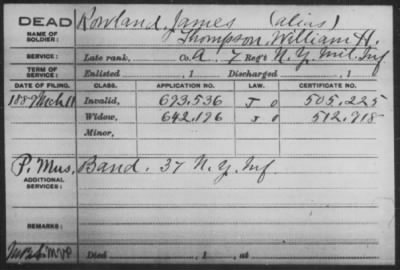 DEAD Rowland, James (alias)
NAME OF SOLDIER: Thompson, William H.
SERVICE: Late rank, Co. A, 7 Reg't N.Y. Mil. Inf
TERM OF SERVICE: Enlisted , 1 Discharged , 1
DATE OF FILING. CLASS. APPLICATION NO. LAW. CERTIFICATE NO.
1887 Mch 11 Invalid, 693,536 J O 505,225
Widow, 642,196 J O 512,718
Minor,
P. Mus, Band. 37 N.Y. Inf
ADDITIONAL SERVICES:
REMARKS:
Died , 1 , at